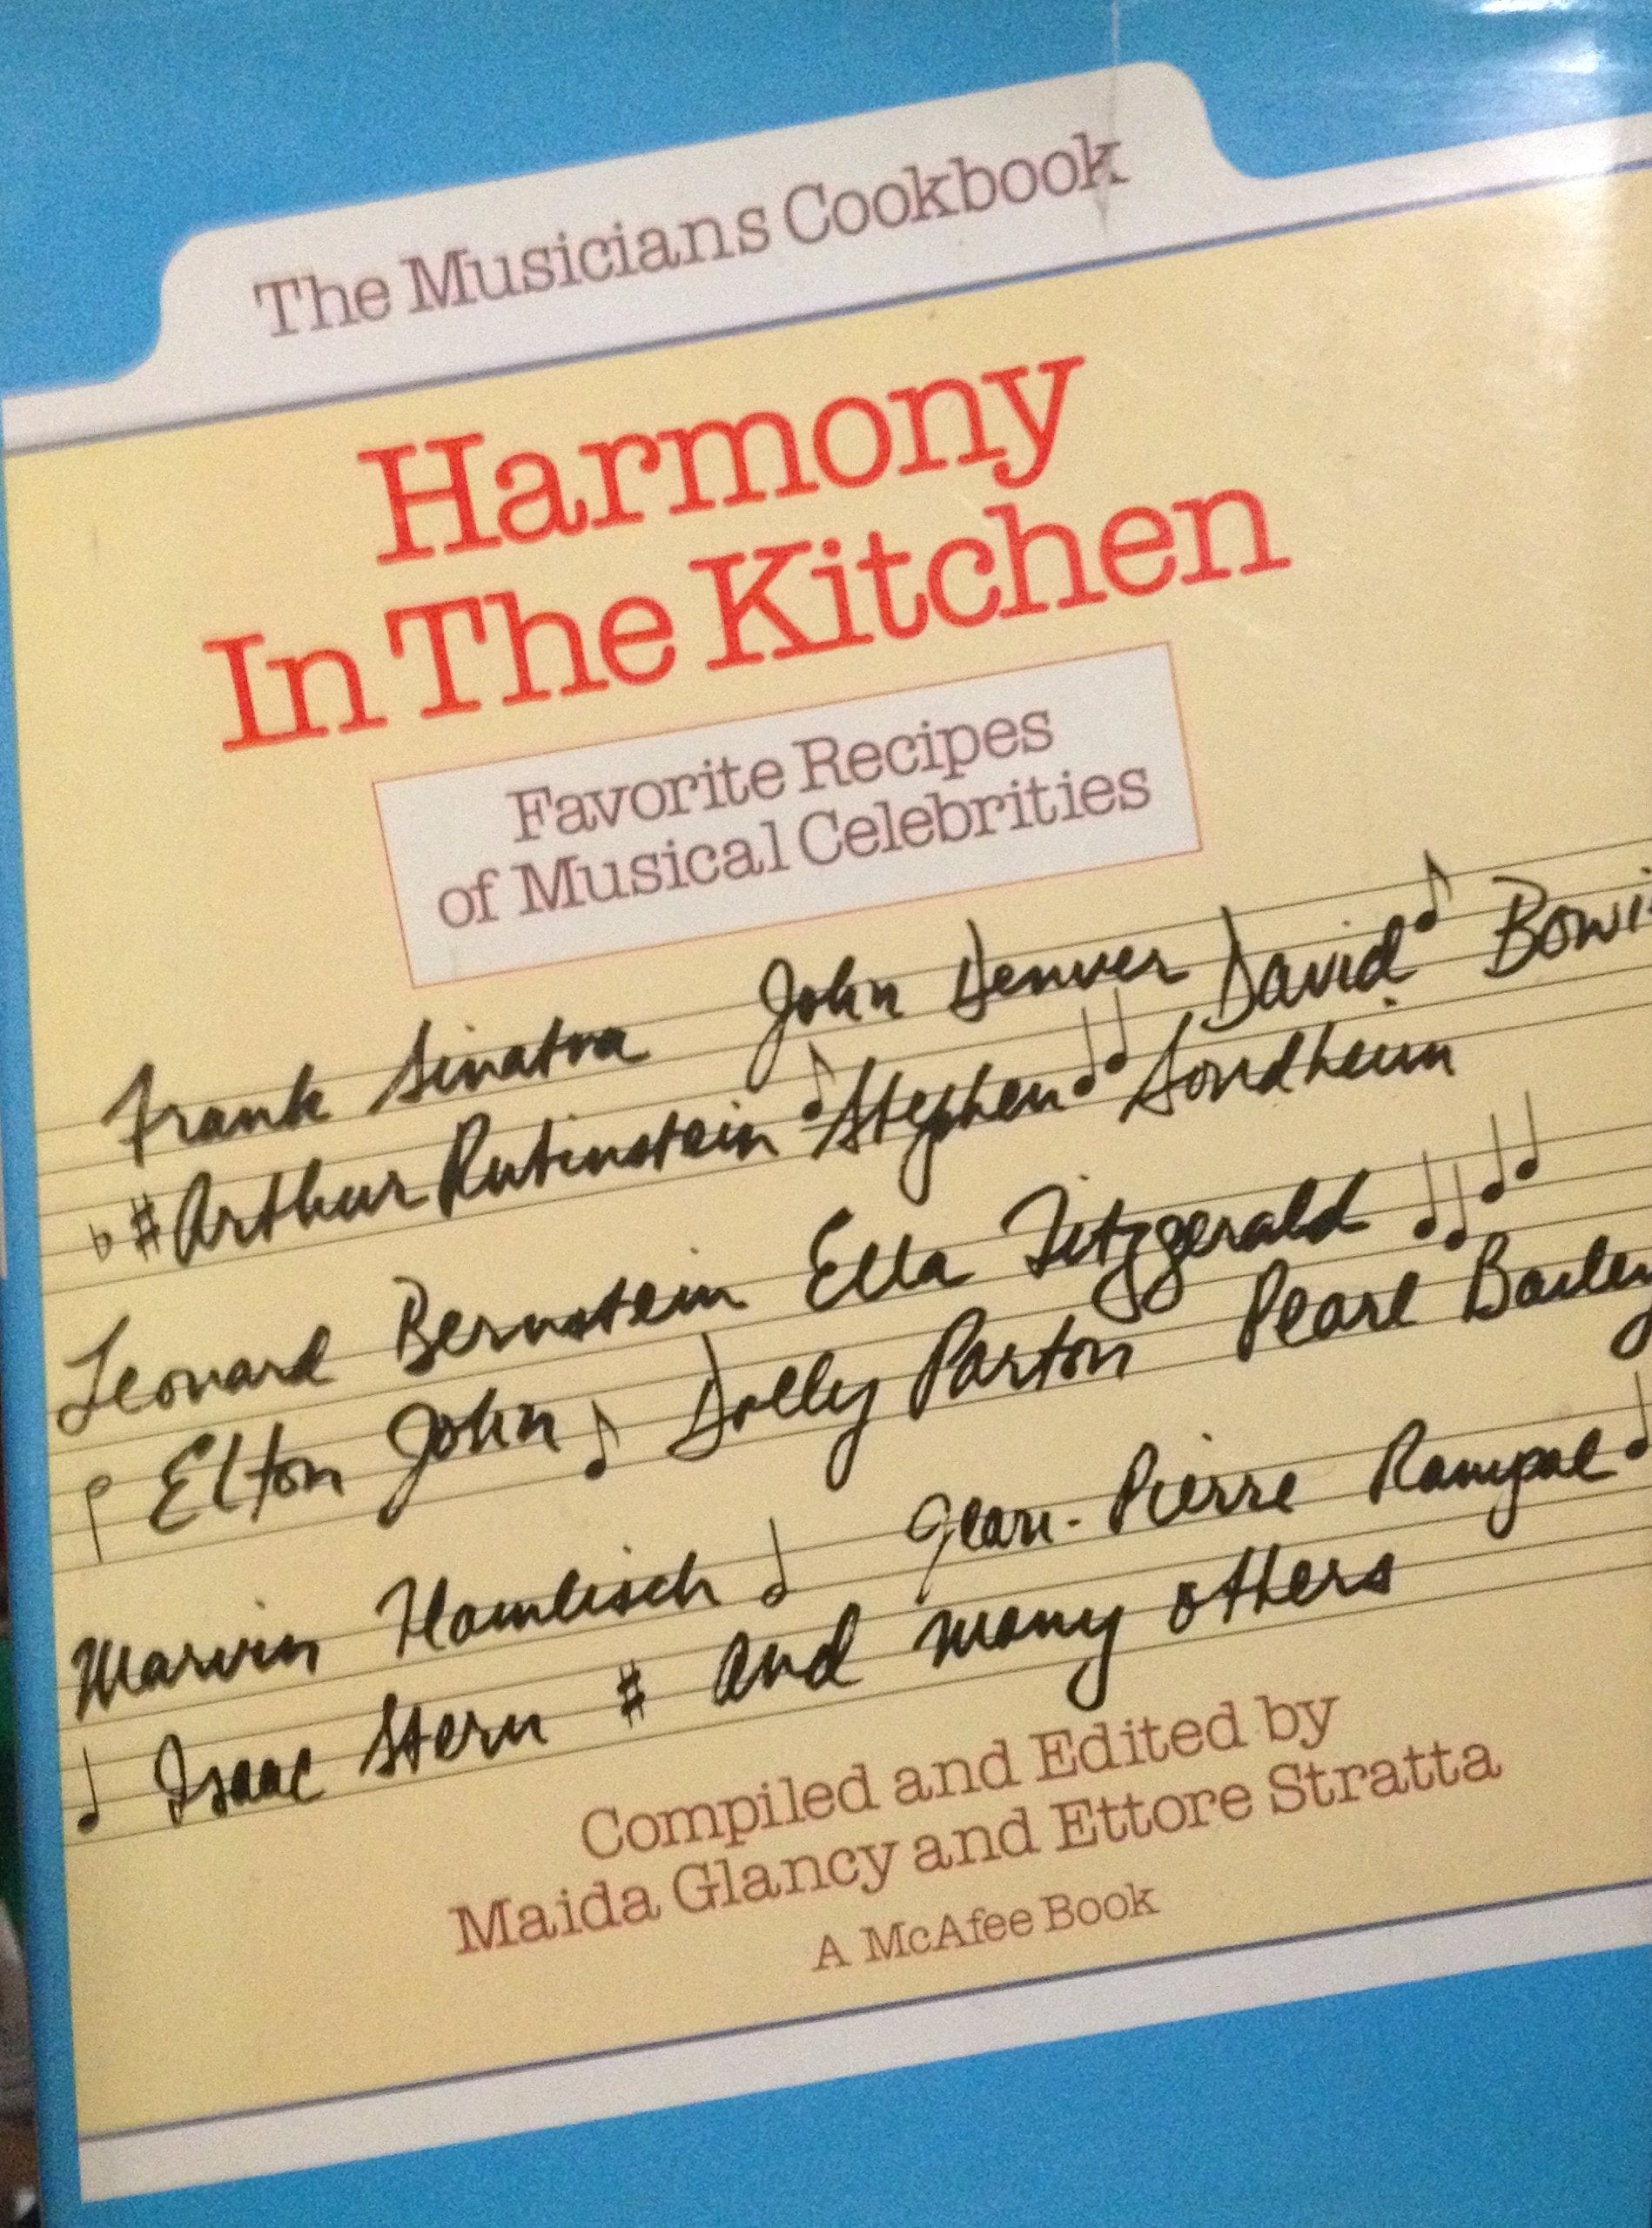 The Musicians Cookbook
Harmony
In The Kitchen
Favorite Recipes
of Musical Celebrities
Frank Sinatra John Denver David Bowi
Arthur Rubinstein Stephen Sondheim
Leonard Bernstein Ella Fitzgerald
Elton John Dolly Parton Pearl Bailey
Marvin Hamlisch Jean-Pierre Rampal
Isaac Stern and many others
Compiled and Edited by
Maida Glancy and Ettore Stratta
A McAfee Book